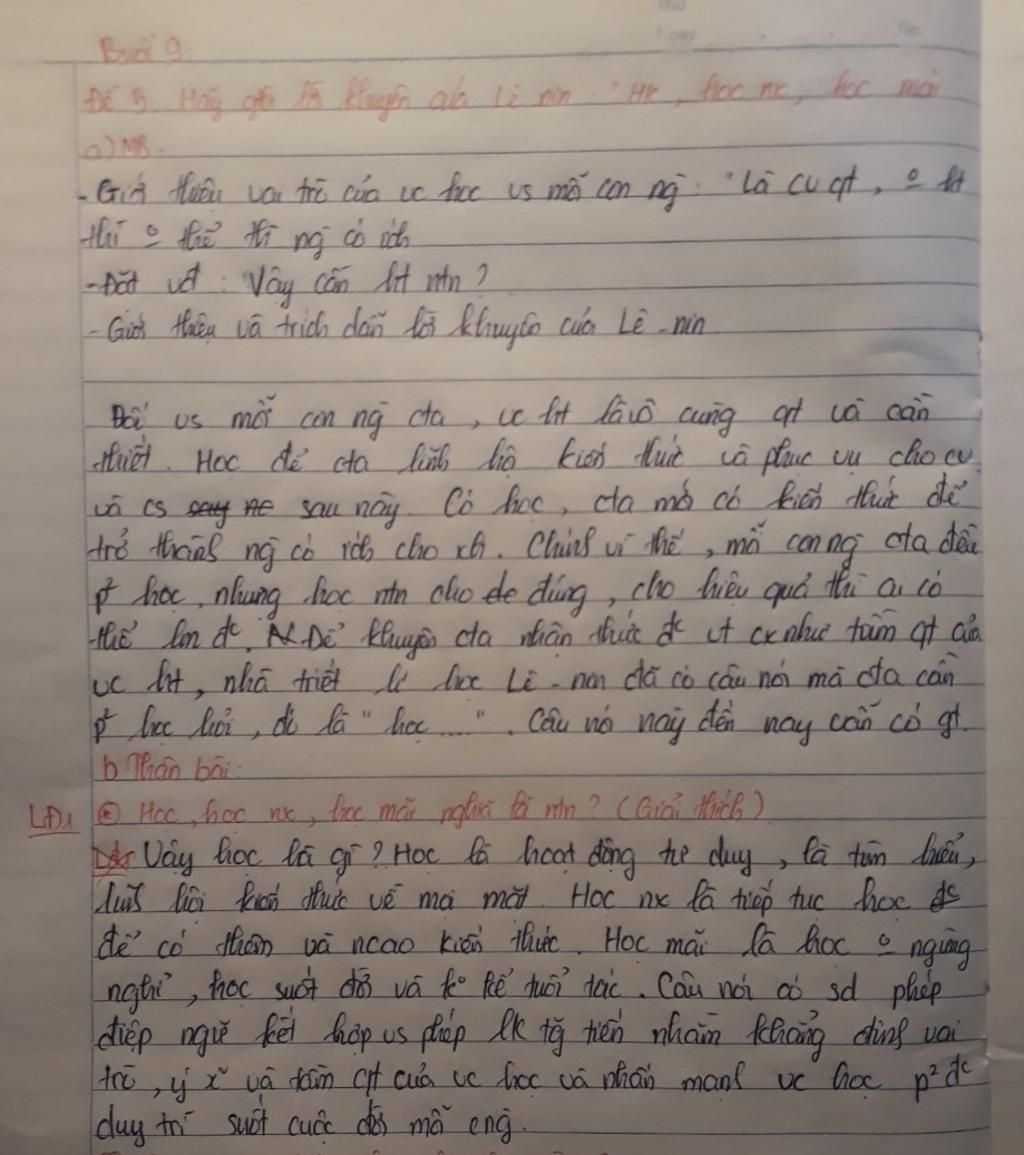 Buổi 9.
Đề 5. Hãy gt lời khuyên của Lê nin: "Học, học nx, học mãi
a) MB.
- Giới thiệu vai trò của vc học vs mỗi con ng: "Là cv qt, o ht
thì o thể tr ng có ích
- Đặt vđ: Vậy cần ht ntn?
- Giới thiệu và trích dẫn lời khuyên của Lê-nin
Đối vs mỗi con ng cta, vc ht là vô cùng qt và cần
thiết. Học để cta lĩnh hội kiến thức và phục vụ cho cv
và cs sau này. Có học, cta mới có kiến thức để
trở thành ng có ích cho xh. Chính vì thế, mỗi con ng cta đều
p² học, nhưng học ntn cho đúng, cho hiệu quả thì ai có
thể làm đc. Để khuyên cta nhận thức đc vt cx như tầm qt của
vc ht, nhà triết lí học Lê-nin đã có câu nói mà cta cần
p² học hỏi, đó là "học....". Câu nói này đến nay vẫn có gt.
b Thân bài:
LĐ1 * Học, học nx, học mãi nghĩa là ntn? (Giải thích)
Vậy học là gì? Học là hoạt động tư duy, là tìm hiểu,
lĩnh hội kiến thức về mọi mặt. Học nx là tiếp tục học
để có thêm và ncao kiến thức. Học mãi là học o ngừng
nghỉ, học suốt đời và ko kể tuổi tác. Câu nói có sd phép
điệp ngữ kết hợp vs phép lk tg tiến nhằm khẳng định vai
trò, ý x~ và tầm qt của vc học và nhấn mạnh vc học p² đc
duy trì suốt cuộc đời mỗi cng.